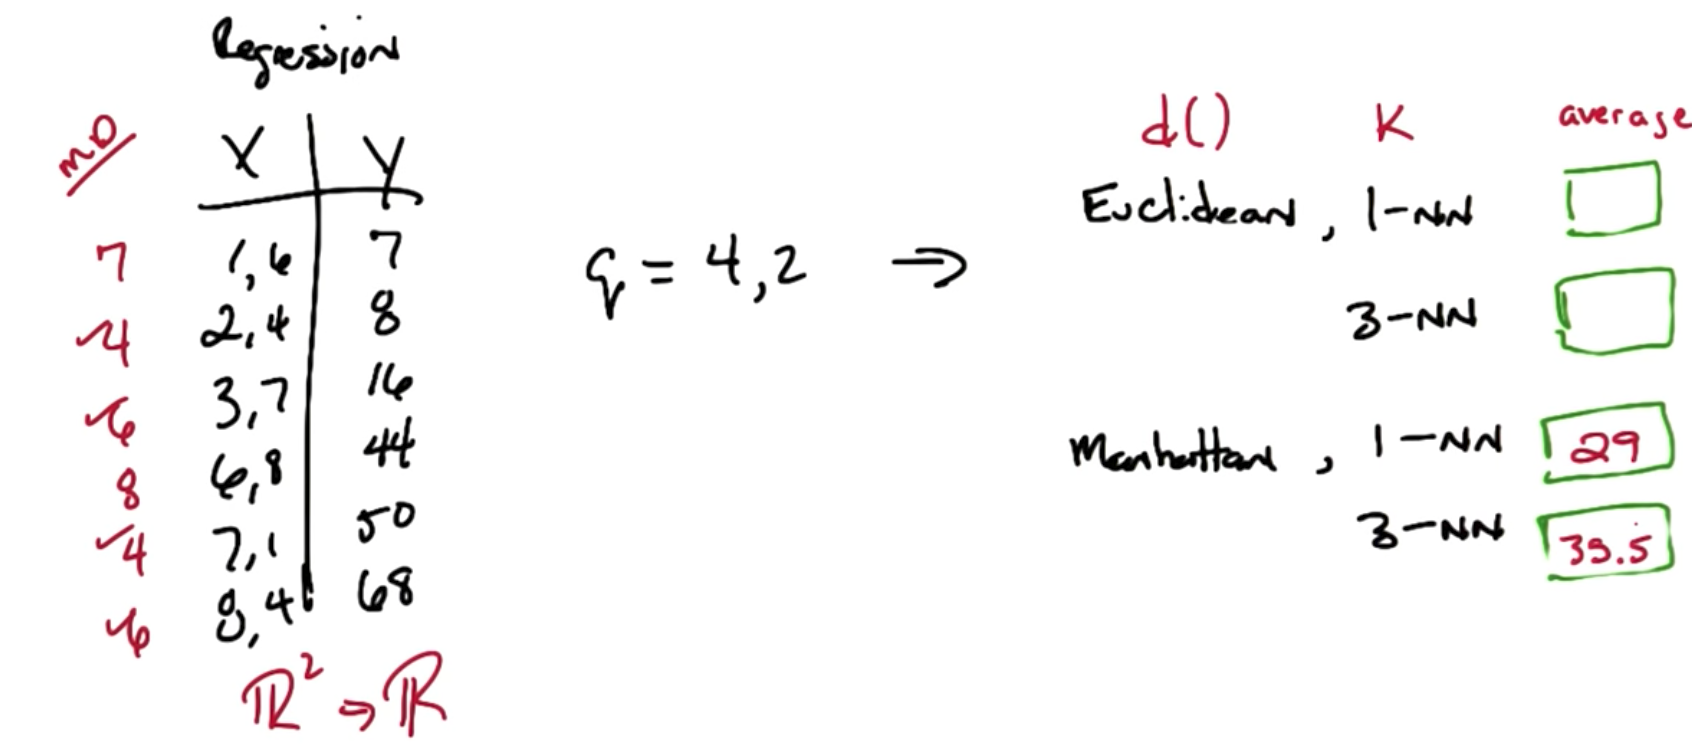 Regression
mD X Y
7 1,6 7
✓4 2,4 8
✓6 3,7 16
8 6,8 44
✓4 7,1 50
✓6 8,4 68
ℝ² → ℝ
q = 4,2 →
d() K average
Euclidean, 1-NN
3-NN
Manhattan, 1-NN 29
3-NN 35.5